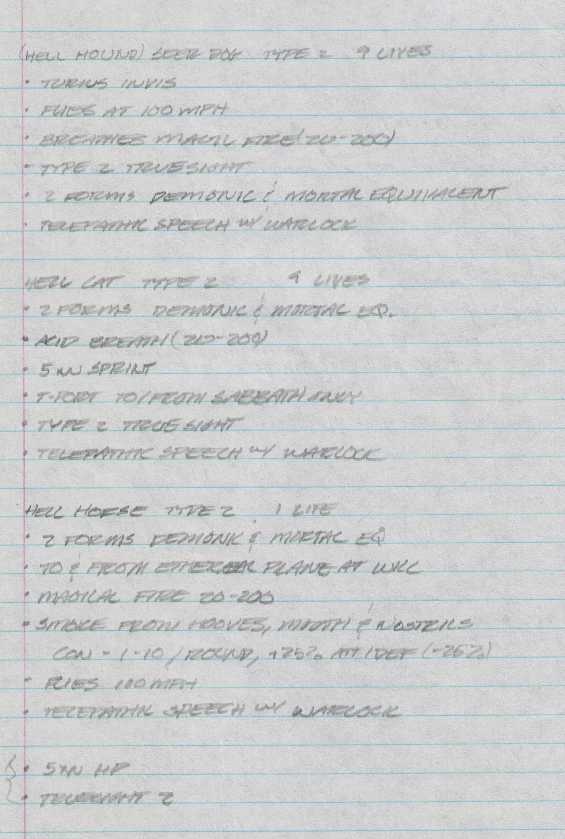 (HELL HOUND) SEER DOG TYPE 2 9 LIVES
• TURNS INVIS
• FLIES AT 100 MPH
• BREATHES MAGIC FIRE (20-200)
• TYPE 2 TRUESIGHT
• 2 FORMS DEMONIC & MORTAL EQUIVALENT
• TELEPATHIC SPEECH W/ WARLOCK
HELL CAT TYPE 2 9 LIVES
• 2 FORMS DEMONIC & MORTAL EQ.
• ACID BREATH (20-200)
• 5XN SPRINT
• T-PORT TO/FROM SABBATH ONLY
• TYPE 2 TRUESIGHT
• TELEPATHIC SPEECH W/ WARLOCK
HELL HORSE TYPE 2 1 LIFE
• 2 FORMS DEMONIC & MORTAL EQ
• TO & FROM ETHEREAL PLANE AT WILL
• MAGICAL FIRE 20-200
• SMOKE FROM HOOVES, MOUTH & NOSTRILS
CON - 1-10 / ROUND, +25% ATT/DEF (-25%)
• FLIES 100 MPH
• TELEPATHIC SPEECH W/ WARLOCK
• 5XN HP
• TRUESIGHT 2